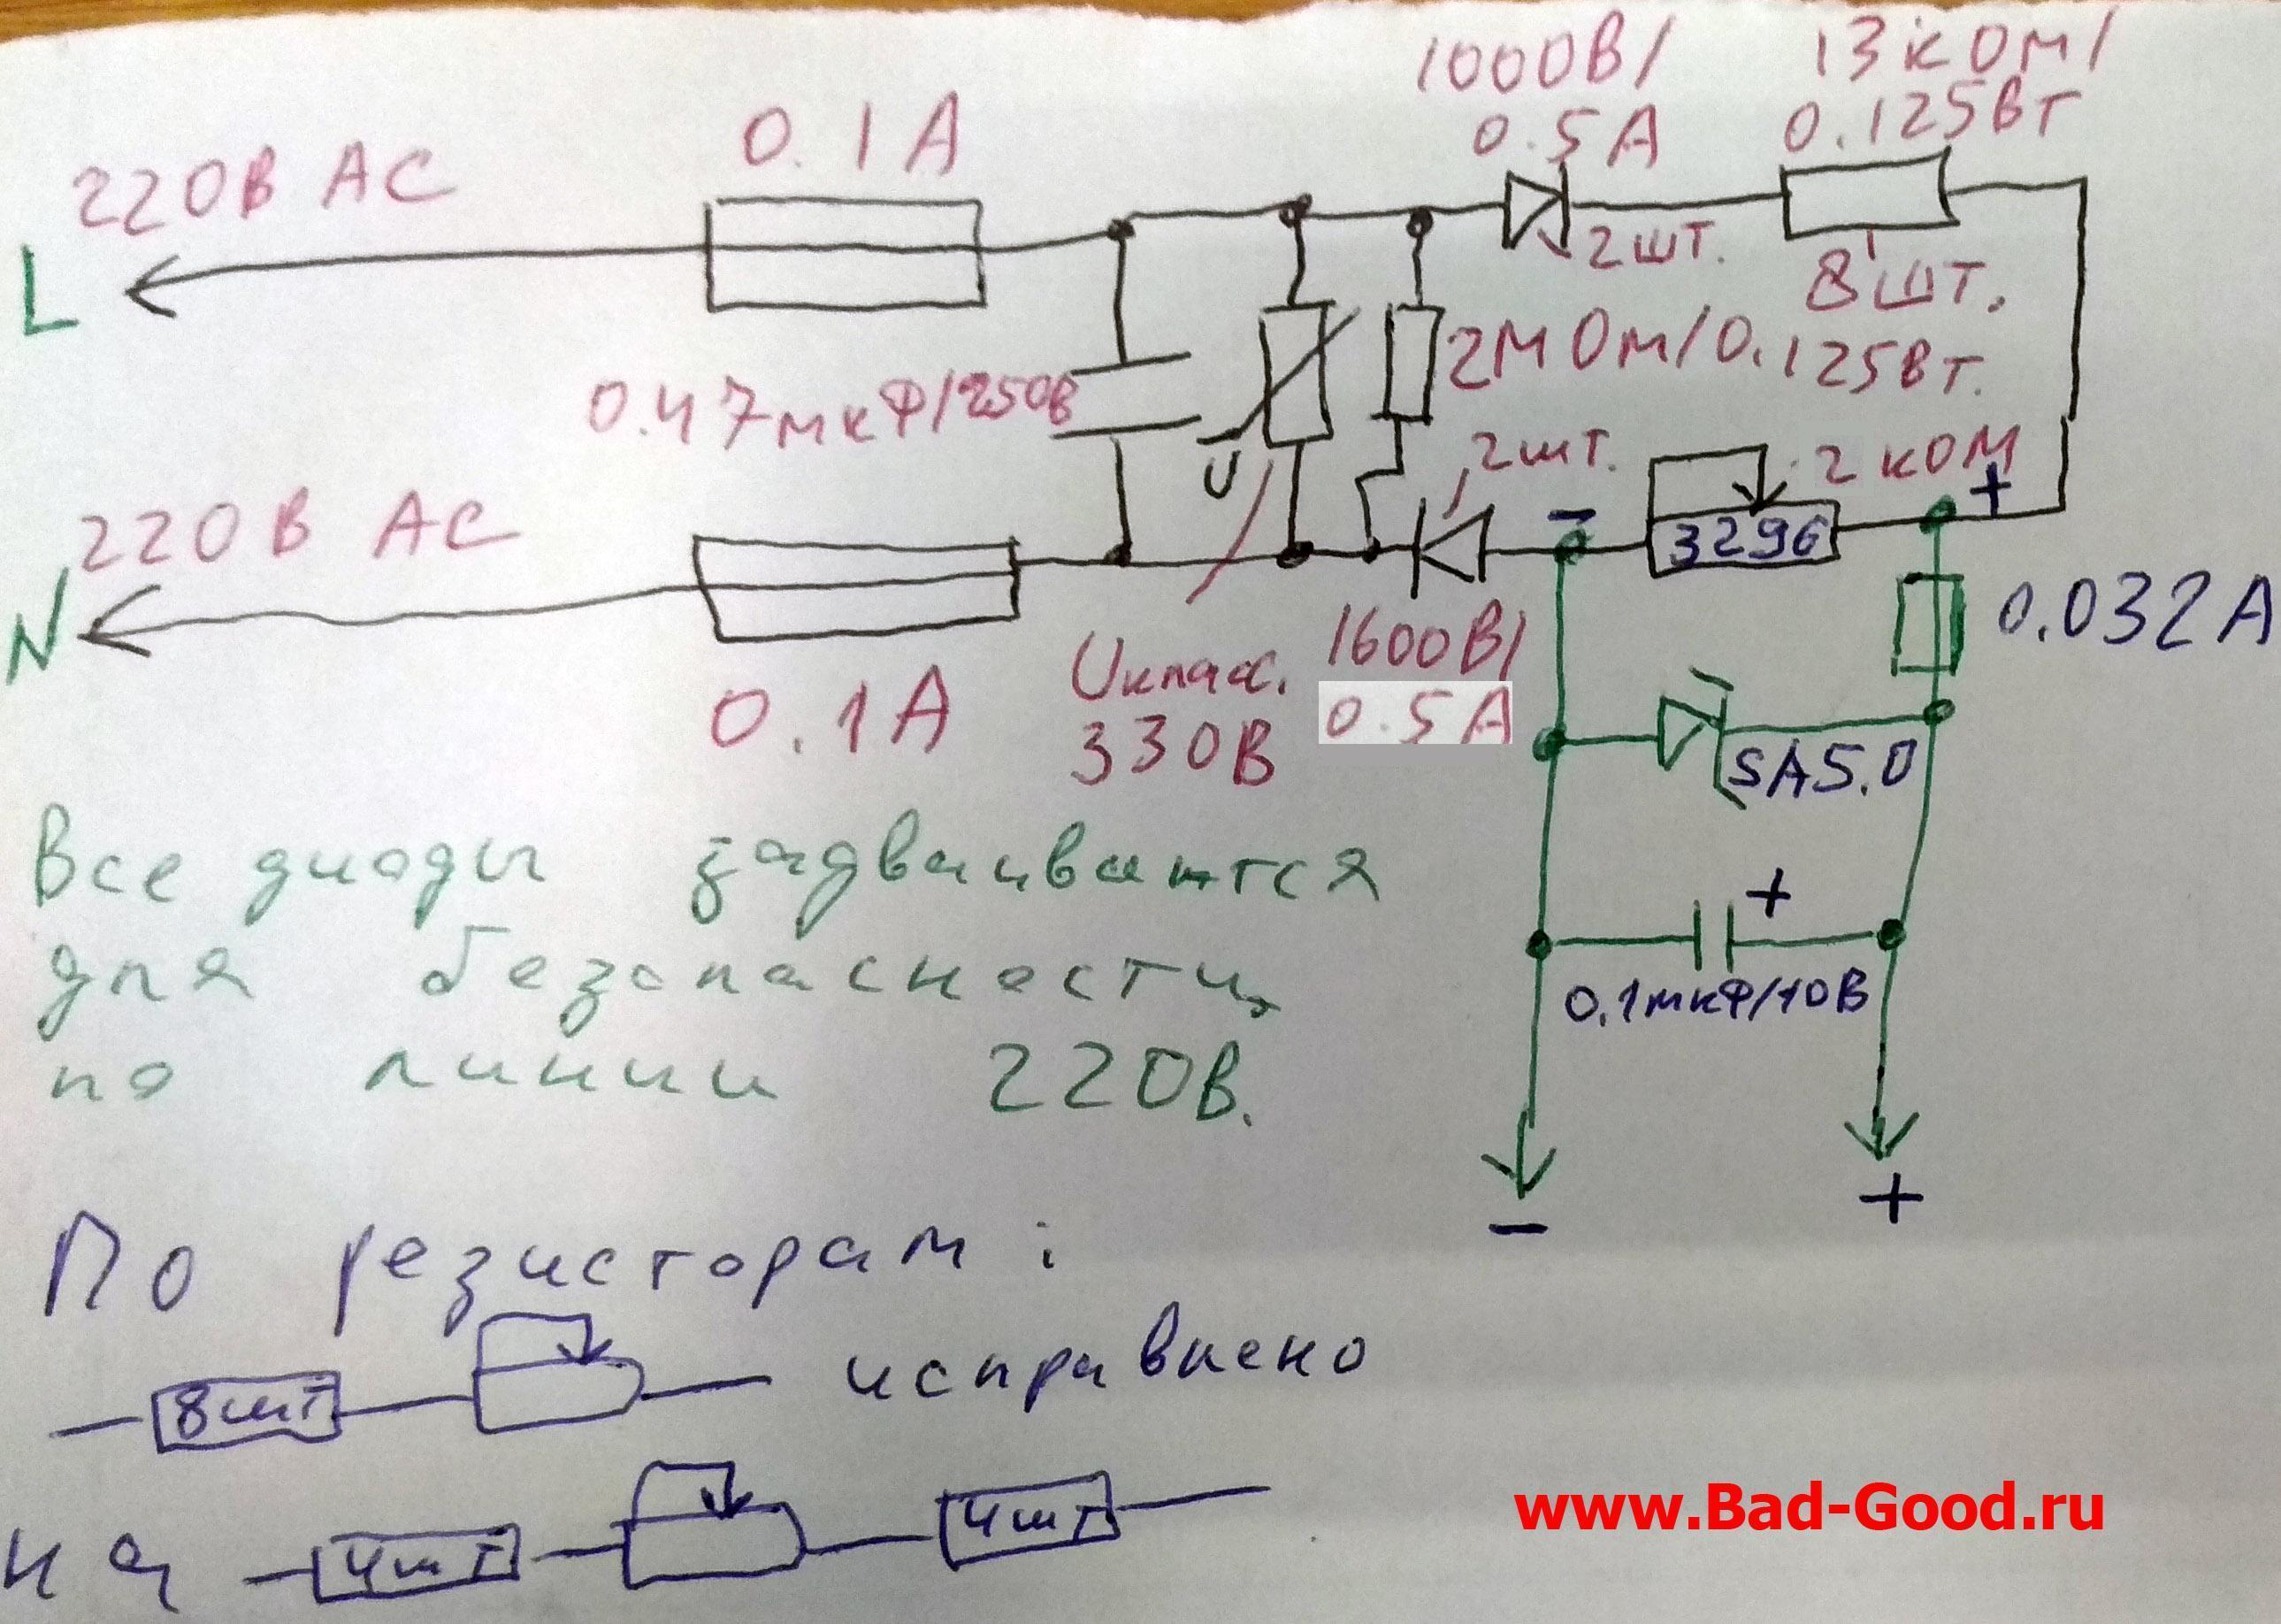 1000В/
0.5А
13кОм/
0.125Вт
0.1А
220В АС
L
2шт.
8шт.
2МОм/0.125Вт.
0.47мкФ/250В
U
2шт.
2кОм
+
-
3296
220В АС
N
0.032А
0.1А
Uкласс.
330В
1600В/
0.5А
SA5.0
Все диоды задваиваются
для безопасности,
по линии 220В.
+
0.1мкФ/10В
-
+
По резисторам:
8шт
исправлено
на
4шт
4шт
www.Bad-Good.ru